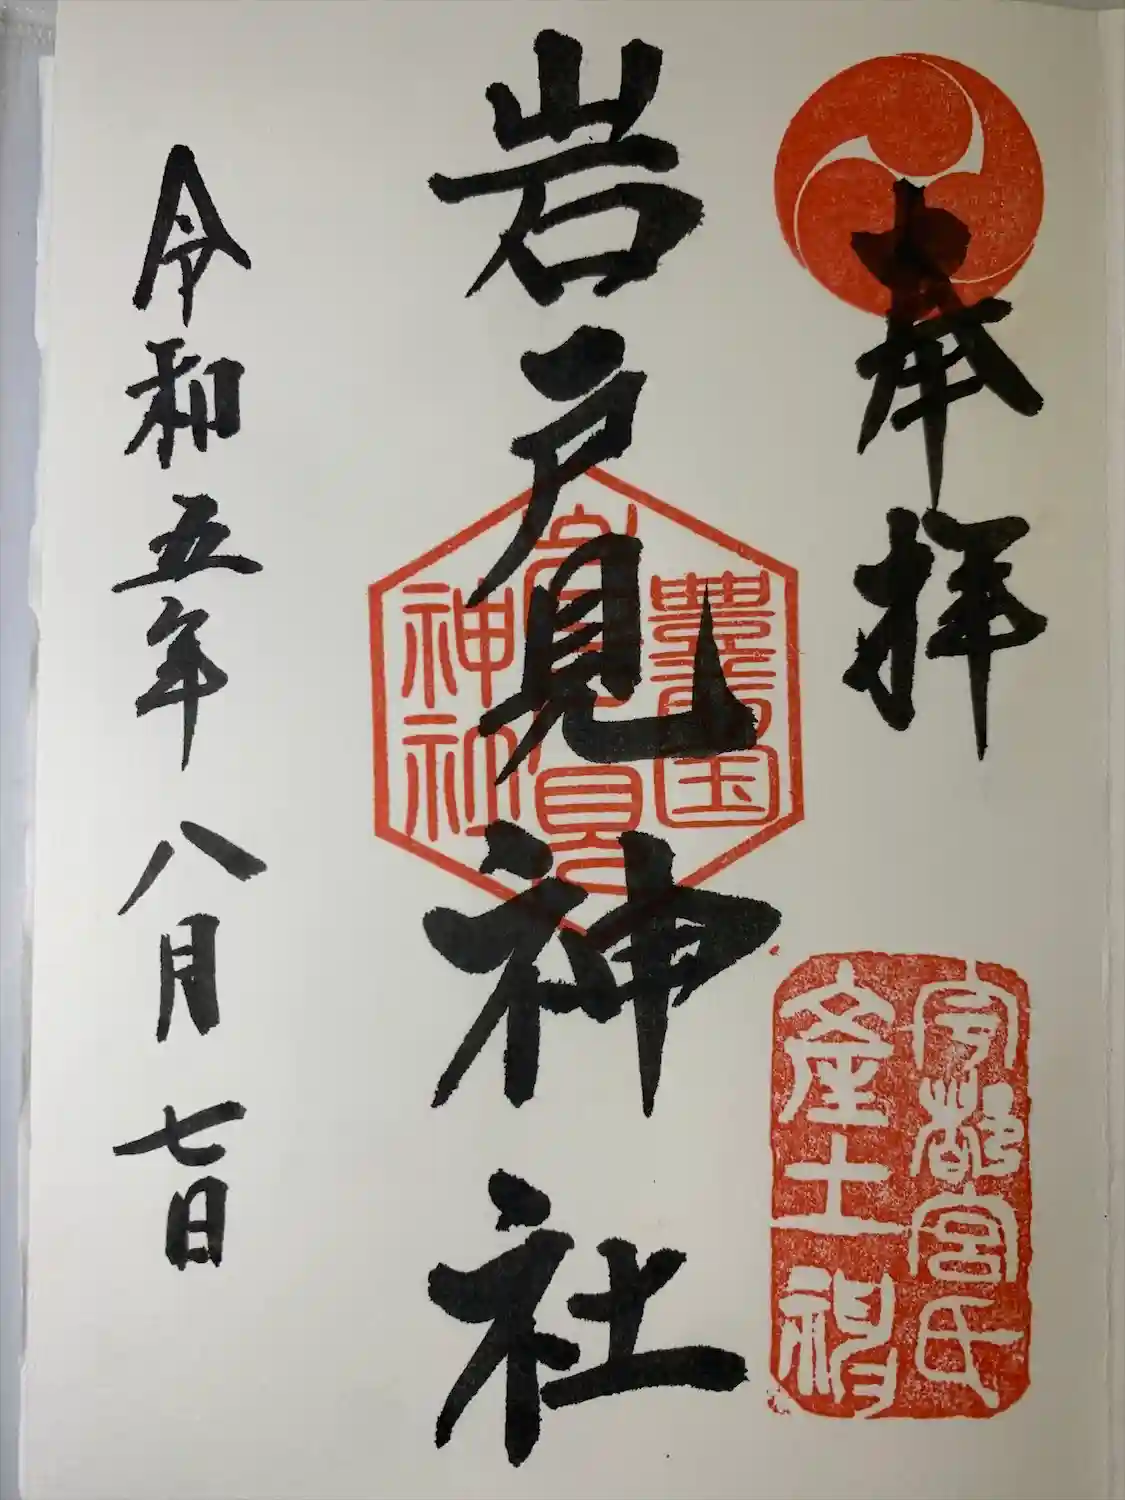 奉拝
宇都宮氏
産土神
岩戸見神社
豊前国
岩戸見
神社
令和五年八月七日